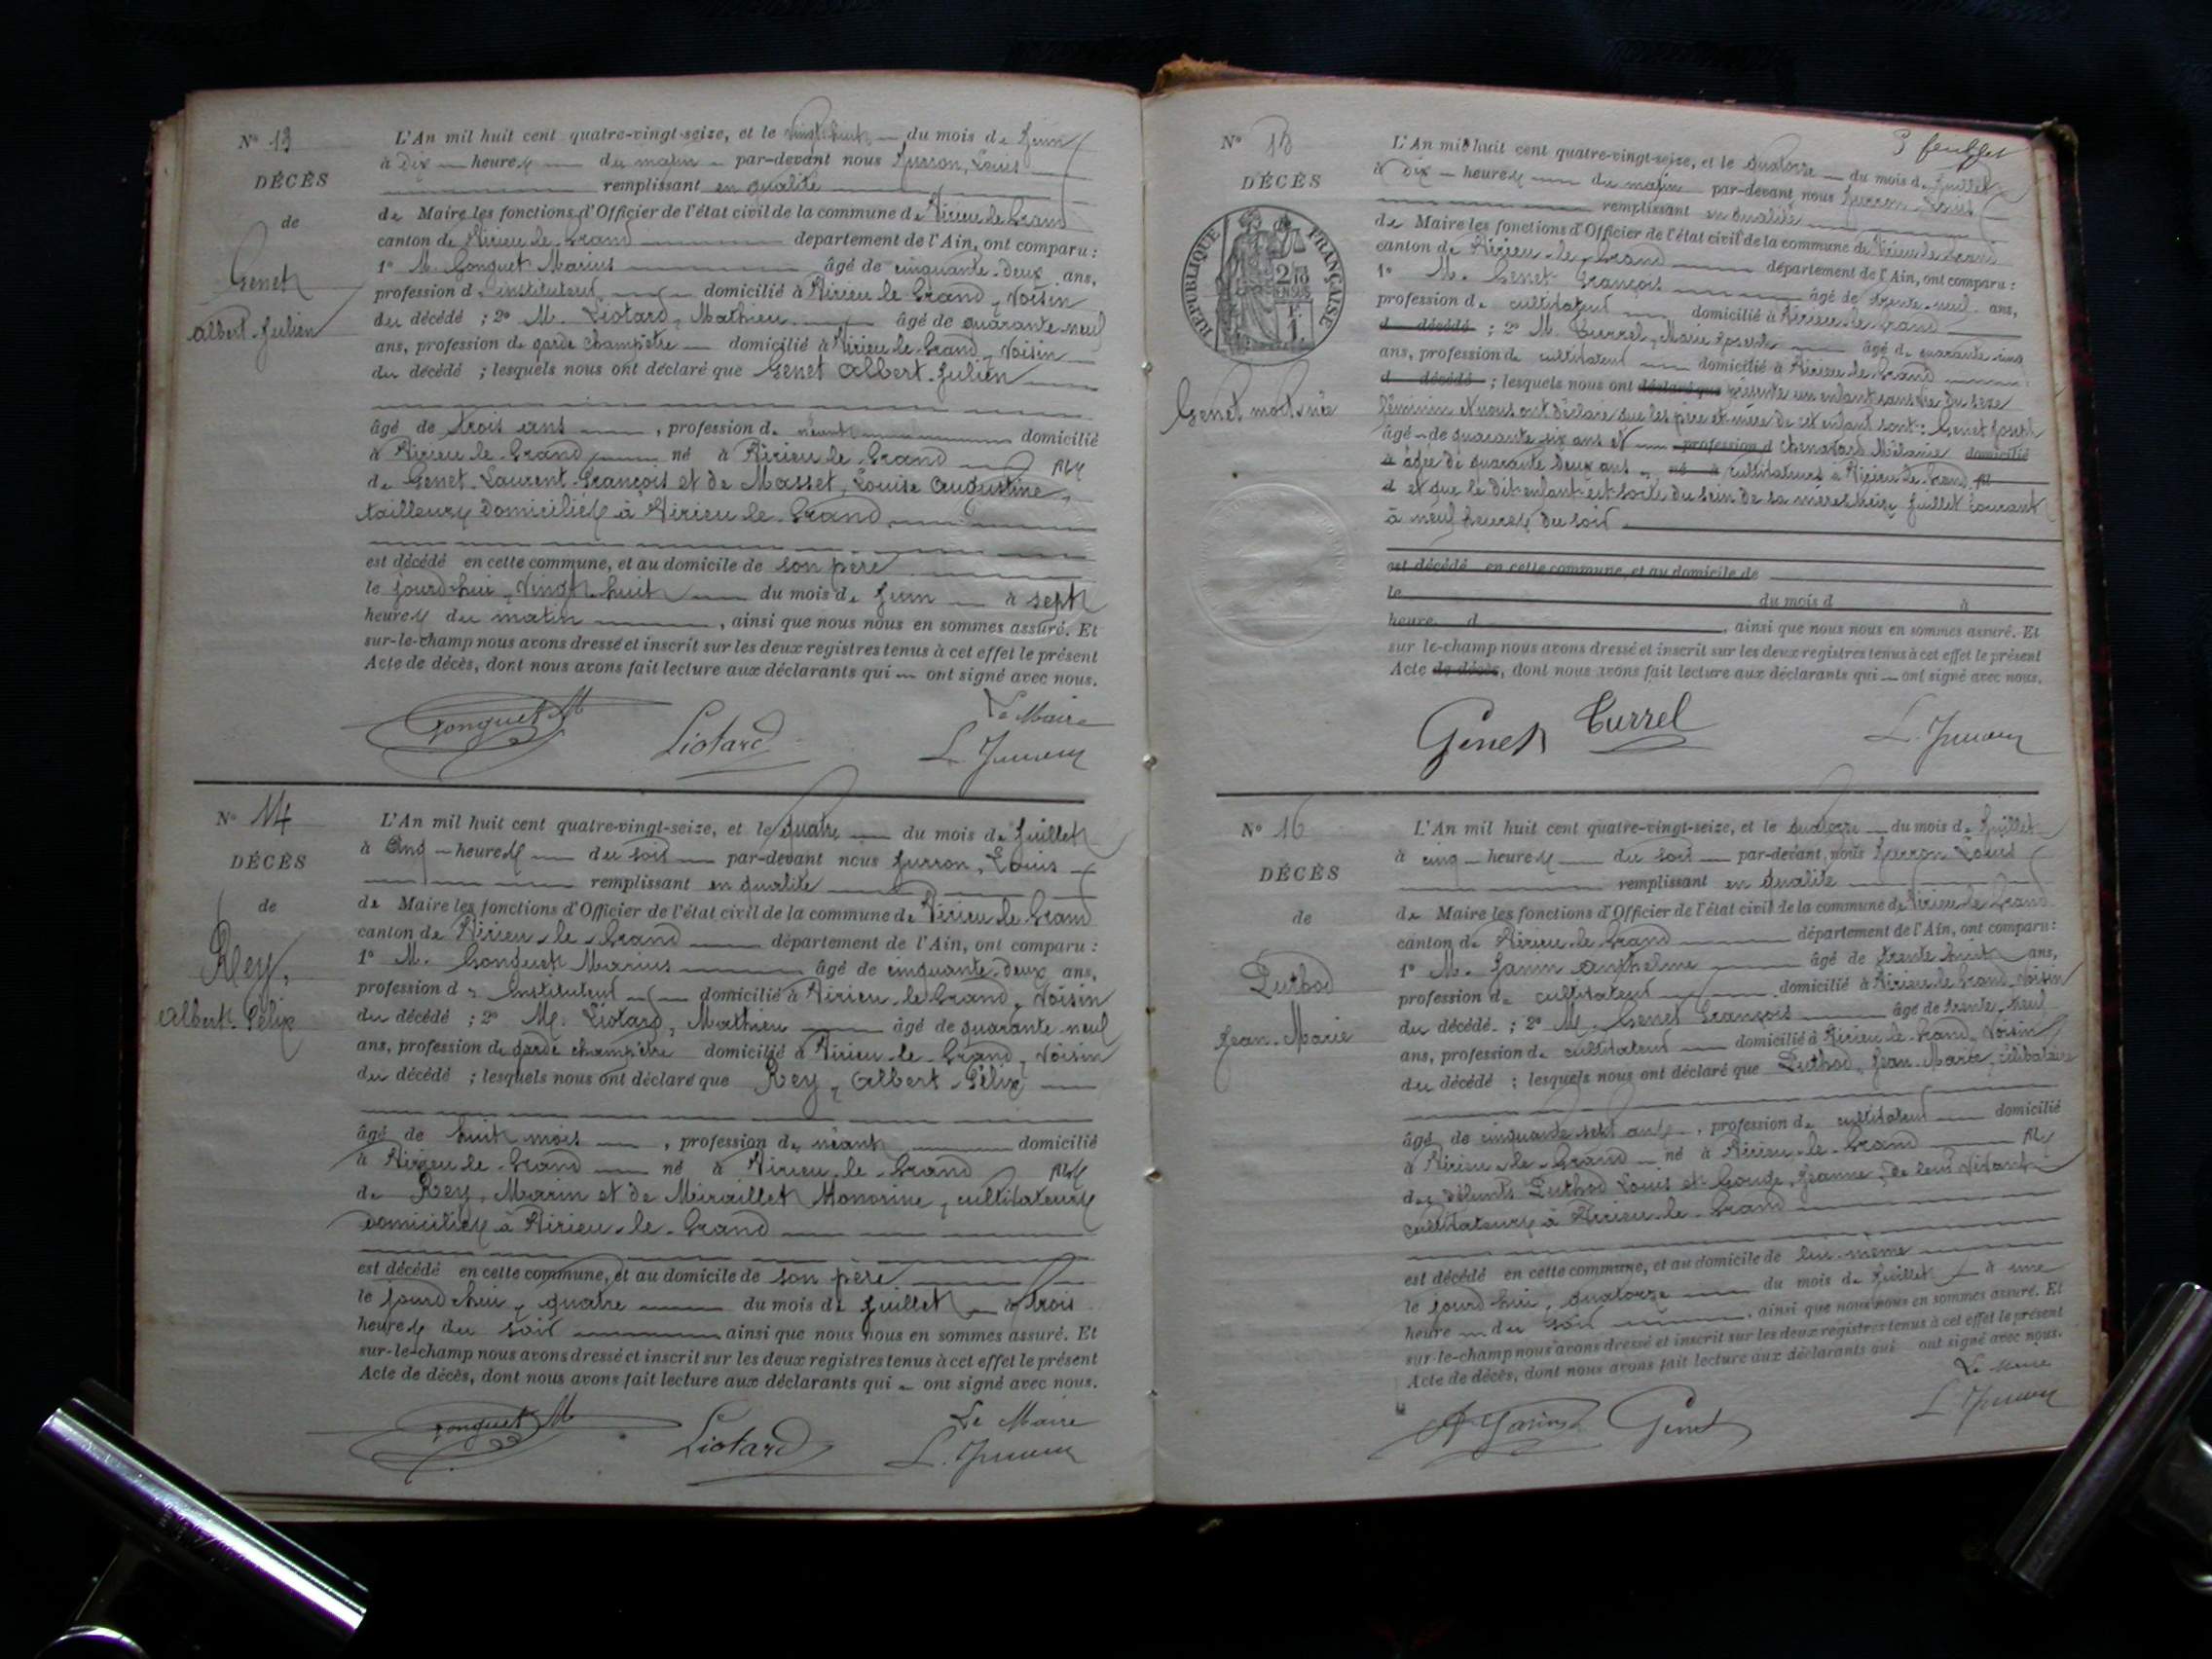 N° 13
DÉCÈS
de
Genet
Albert-Julien
L'An mil huit cent quatre-vingt-seize, et le vingt-huit du mois de Juin
à Dix heures du matin par-devant nous Jurron, Louis
remplissant en qualité
de Maire les fonctions d'Officier de l'état civil de la commune de Virieu-le-Grand
canton de Virieu-le-Grand département de l'Ain, ont comparu :
1° M. Gonguet Marius âgé de cinquante-deux ans,
profession d'instituteur domicilié à Virieu le Grand, Voisin
du décédé ; 2° M. Liotard, Mathieu âgé de quarante-neuf
ans, profession de garde champêtre domicilié à Virieu-le-Grand, Voisin
du décédé ; lesquels nous ont déclaré que Genet Albert-Julien
âgé de trois ans, profession de néant domicilié
à Virieu-le-Grand né à Virieu-le-Grand fils
de Genet Laurent-François et de Masset, Louise Augustine,
tailleurs domiciliés à Virieu-le-Grand
est décédé en cette commune, et au domicile de son père
le jourd'hui, vingt-huit du mois de Juin à sept
heures du matin, ainsi que nous nous en sommes assuré. Et
sur-le-champ nous avons dressé et inscrit sur les deux registres tenus à cet effet le présent
Acte de décès, dont nous avons fait lecture aux déclarants qui ont signé avec nous.
Gonguet M Liotard
Le Maire
N° 14
DÉCÈS
de
Rey,
Albert-Félix
L'An mil huit cent quatre-vingt-seize, et le quatre du mois de Juillet
à Cinq heures du soir par-devant nous Jurron, Louis
remplissant en qualité
de Maire les fonctions d'Officier de l'état civil de la commune de Virieu-le-Grand
canton de Virieu-le-Grand département de l'Ain, ont comparu :
1° M. Gonguet Marius âgé de cinquante-deux ans,
profession d'Instituteur domicilié à Virieu-le-Grand, Voisin
du décédé ; 2° M. Liotard, Mathieu âgé de quarante-neuf
ans, profession de garde champêtre domicilié à Virieu-le-Grand, Voisin
du décédé ; lesquels nous ont déclaré que Rey, Albert-Félix
âgé de huit mois, profession de néant domicilié
à Virieu-le-Grand né à Virieu-le-Grand fils
de Rey, Marin et de Miraillet Honorine, cultivateurs
domiciliés à Virieu-le-Grand
est décédé en cette commune, et au domicile de son père
le jourd'hui, quatre du mois de Juillet à trois
heures du soir ainsi que nous nous en sommes assuré. Et
sur-le-champ nous avons dressé et inscrit sur les deux registres tenus à cet effet le présent
Acte de décès, dont nous avons fait lecture aux déclarants qui ont signé avec nous.
Gonguet M Liotard
Le Maire
3 feuillet
N° 15
DÉCÈS
RÉPUBLIQUE FRANÇAISE
Genet mort-née
L'An mil huit cent quatre-vingt-seize, et le quatorze du mois de Juillet
à dix heures du matin par-devant nous Jurron Louis
remplissant en qualité
de Maire les fonctions d'Officier de l'état civil de la commune de Virieu-le-Grand
canton de Virieu-le-Grand département de l'Ain, ont comparu :
1° M. Genet François âgé de trente-neuf ans,
profession de cultivateur domicilié à Virieu-le-Grand
d décédé ; 2° M. Turrel, Marie Joseph âgé de quarante cinq
ans, profession de cultivateur domicilié à Virieu-le-Grand
d décédé ; lesquels nous ont déclaré que présenté un enfant sans vie du sexe
féminin et nous ont déclaré que les père et mère de cet enfant sont : Genet Joseph
âgé de quarante six ans et profession d Chenavard Mélanie domicilié
à âgée de quarante deux ans, né à cultivateurs à Virieu-le-Grand, fil
d et que le dit enfant est sorti du sein de sa mère le treize Juillet courant
à neuf heures du soir
est décédé en cette commune, et au domicile de
le du mois d à
heure d, ainsi que nous nous en sommes assuré. Et
sur le-champ nous avons dressé et inscrit sur les deux registres tenus à cet effet le présent
Acte de décès, dont nous avons fait lecture aux déclarants qui ont signé avec nous.
Genet Turrel
N° 16
DÉCÈS
de
Puthod
Jean-Marie
L'An mil huit cent quatre-vingt-seize, et le quatorze du mois de Juillet
à cinq heures du soir par-devant nous Jurron Louis
remplissant en qualité
de Maire les fonctions d'Officier de l'état civil de la commune de Virieu-le-Grand
canton de Virieu-le-Grand département de l'Ain, ont comparu :
1° M. Janin Anthelme âgé de trente huit ans,
profession de cultivateur domicilié à Virieu-le-Grand, Voisin
du décédé ; 2° M. Genet François âgé de trente-neuf
ans, profession de cultivateur domicilié à Virieu-le-Grand, Voisin
du décédé ; lesquels nous ont déclaré que Puthod, Jean-Marie, célibataire
âgé de cinquante sept ans, profession de cultivateur domicilié
à Virieu-le-Grand né à Virieu-le-Grand fils
des défunts Puthod Louis et Gouge, Jeanne, de leur vivant
cultivateurs à Virieu-le-Grand
est décédé en cette commune, et au domicile de lui-même
le jourd'hui, quatorze du mois de Juillet à une
heure du soir, ainsi que nous nous en sommes assuré. Et
sur-le-champ nous avons dressé et inscrit sur les deux registres tenus à cet effet le présent
Acte de décès, dont nous avons fait lecture aux déclarants qui ont signé avec nous.
Le Maire
A Janin Genet